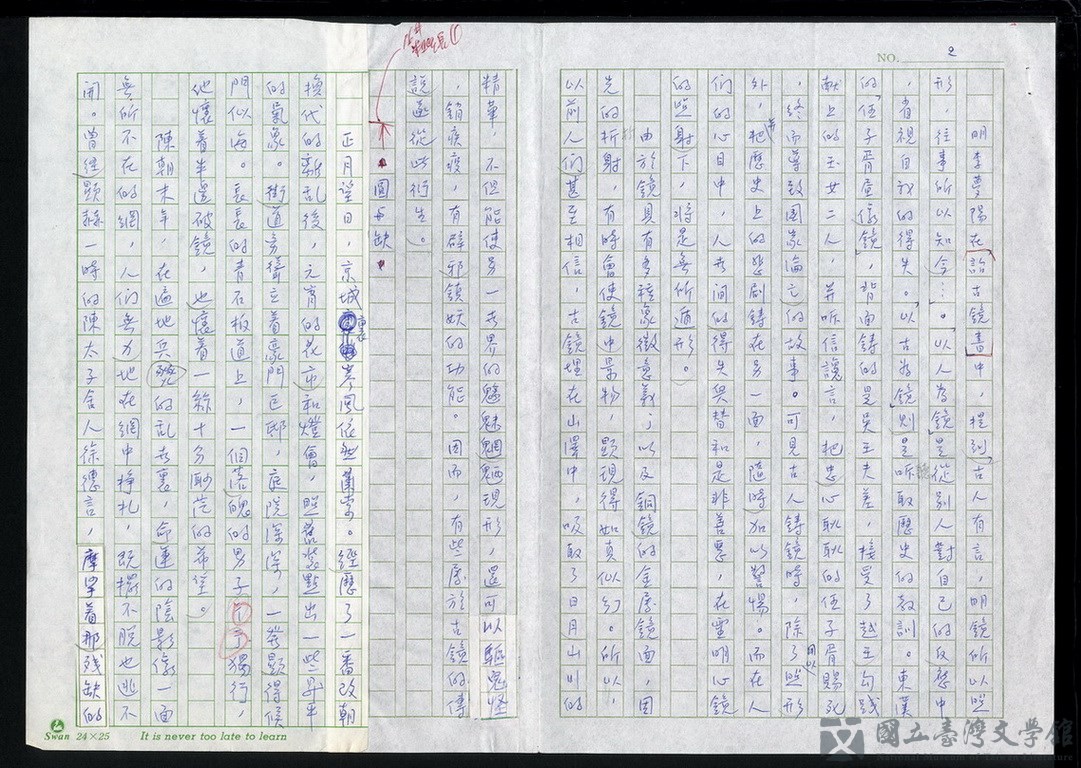 NO. 2
明李夢陽在「詒古鏡書」中，提到「古人有言，明鏡所以照
形，往事所以知今…。」以人為鏡是從別人對自己的反應中
，省視自我的得失。以古為鏡則是听取歷史的教訓。東漢
的「伍子胥畫像鏡」，背面鑄的是吳王夫差，接受了越王勾踐
献上的玉女二人，并听信讒言，把忠心耿耿的伍子胥賜死
，終而導致國家淪亡的故事。可見古人鑄鏡時，除了用以照形
外，把歷史上的悲劇鑄在另一面，隨時加以警惕。而在人
們的心目中，人世間的得失與替和是非善惡，在靈明心鏡
的照射下，將是無所遁形。
由於鏡具有多種象徵意義；以及銅鏡的金屬鏡面，因
先的折射，有時會使鏡中景物，顯現得如真似幻。所以
以前人們甚至相信，古鏡埋在山澤中，吸取了日月山川的
精華，不但能使另一世界的魑魅魍魎現形，還可以驅鬼怪
，銷疾疫，有辟邪鎮妖的功能。因而，有些屬於古鏡的傳
說遂從此衍生。
圓與缺
正月望日，京城裏寒風依然蕭索。經歷了一番改朝
換代的新亂後，元宵的花市和燈會，照舊裝點出一些昇平
的氣象。街道旁聳立着豪門巨邸，庭院深深，一派顯得候
門似海。長長的青石板道上，一個落魄的男子獨行，
他懷着半邊破鏡，也懷着一絲十分渺茫的希望。
陳朝末年，在遍地兵燹的乱世裏，命運的陰影像一面
無所不在的網，人們無力地在網中掙扎，既擺不脫也逃不
開。曾經顯赫一時的陳太子舍人徐德言，摩挲着那残缺的
Swan 24×25 It is never too late to learn
國立臺灣文學館